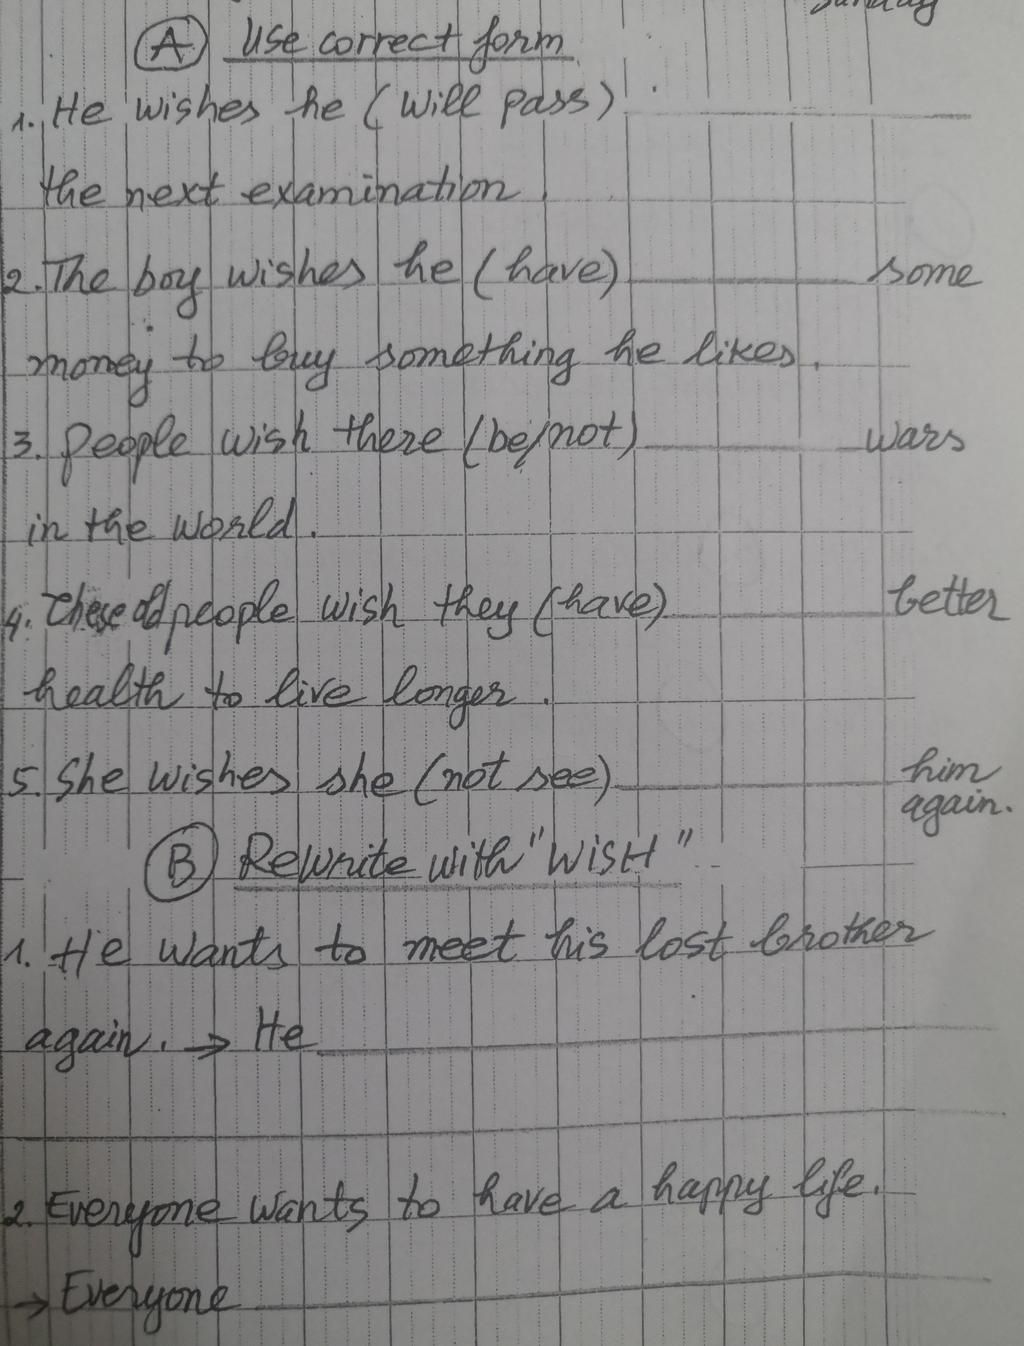 Sunday
(A) Use correct form
1. He wishes he (will pass)
the next examination.
2. The boy wishes he (have) some
money to buy something he likes.
3. people wish there (be/not) wars
in the world.
4. These old people wish they (have) better
health to live longer.
5. She wishes she (not see) him
again.
(B) Rewrite with "WISH"
1. He wants to meet his lost brother
again. → He
2. Everyone wants to have a happy life.
→ Everyone